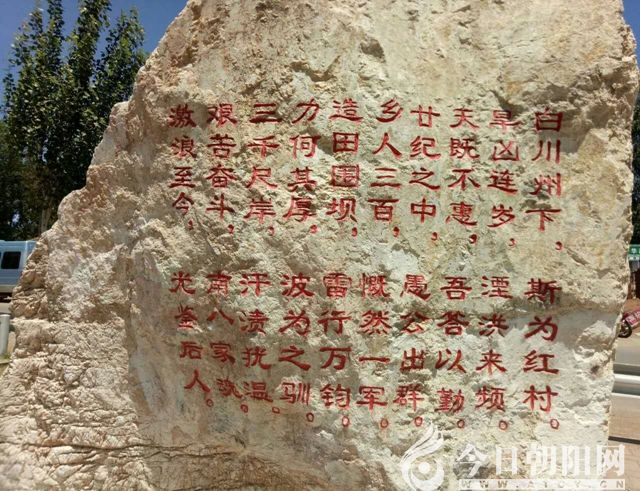 白川州下，斯为红村。
旱凶连岁，湮洪来频。
天既不惠，吾答以勤。
廿纪之中，愚公出群。
乡人三百，慨然一军。
造田围坝，雷行万钧。
力何其厚，波为之驯。
三千尺岸，汗渍犹温。
艰苦奋斗，南八家洮。
激浪至今，光鉴后人。
今日朝阳网